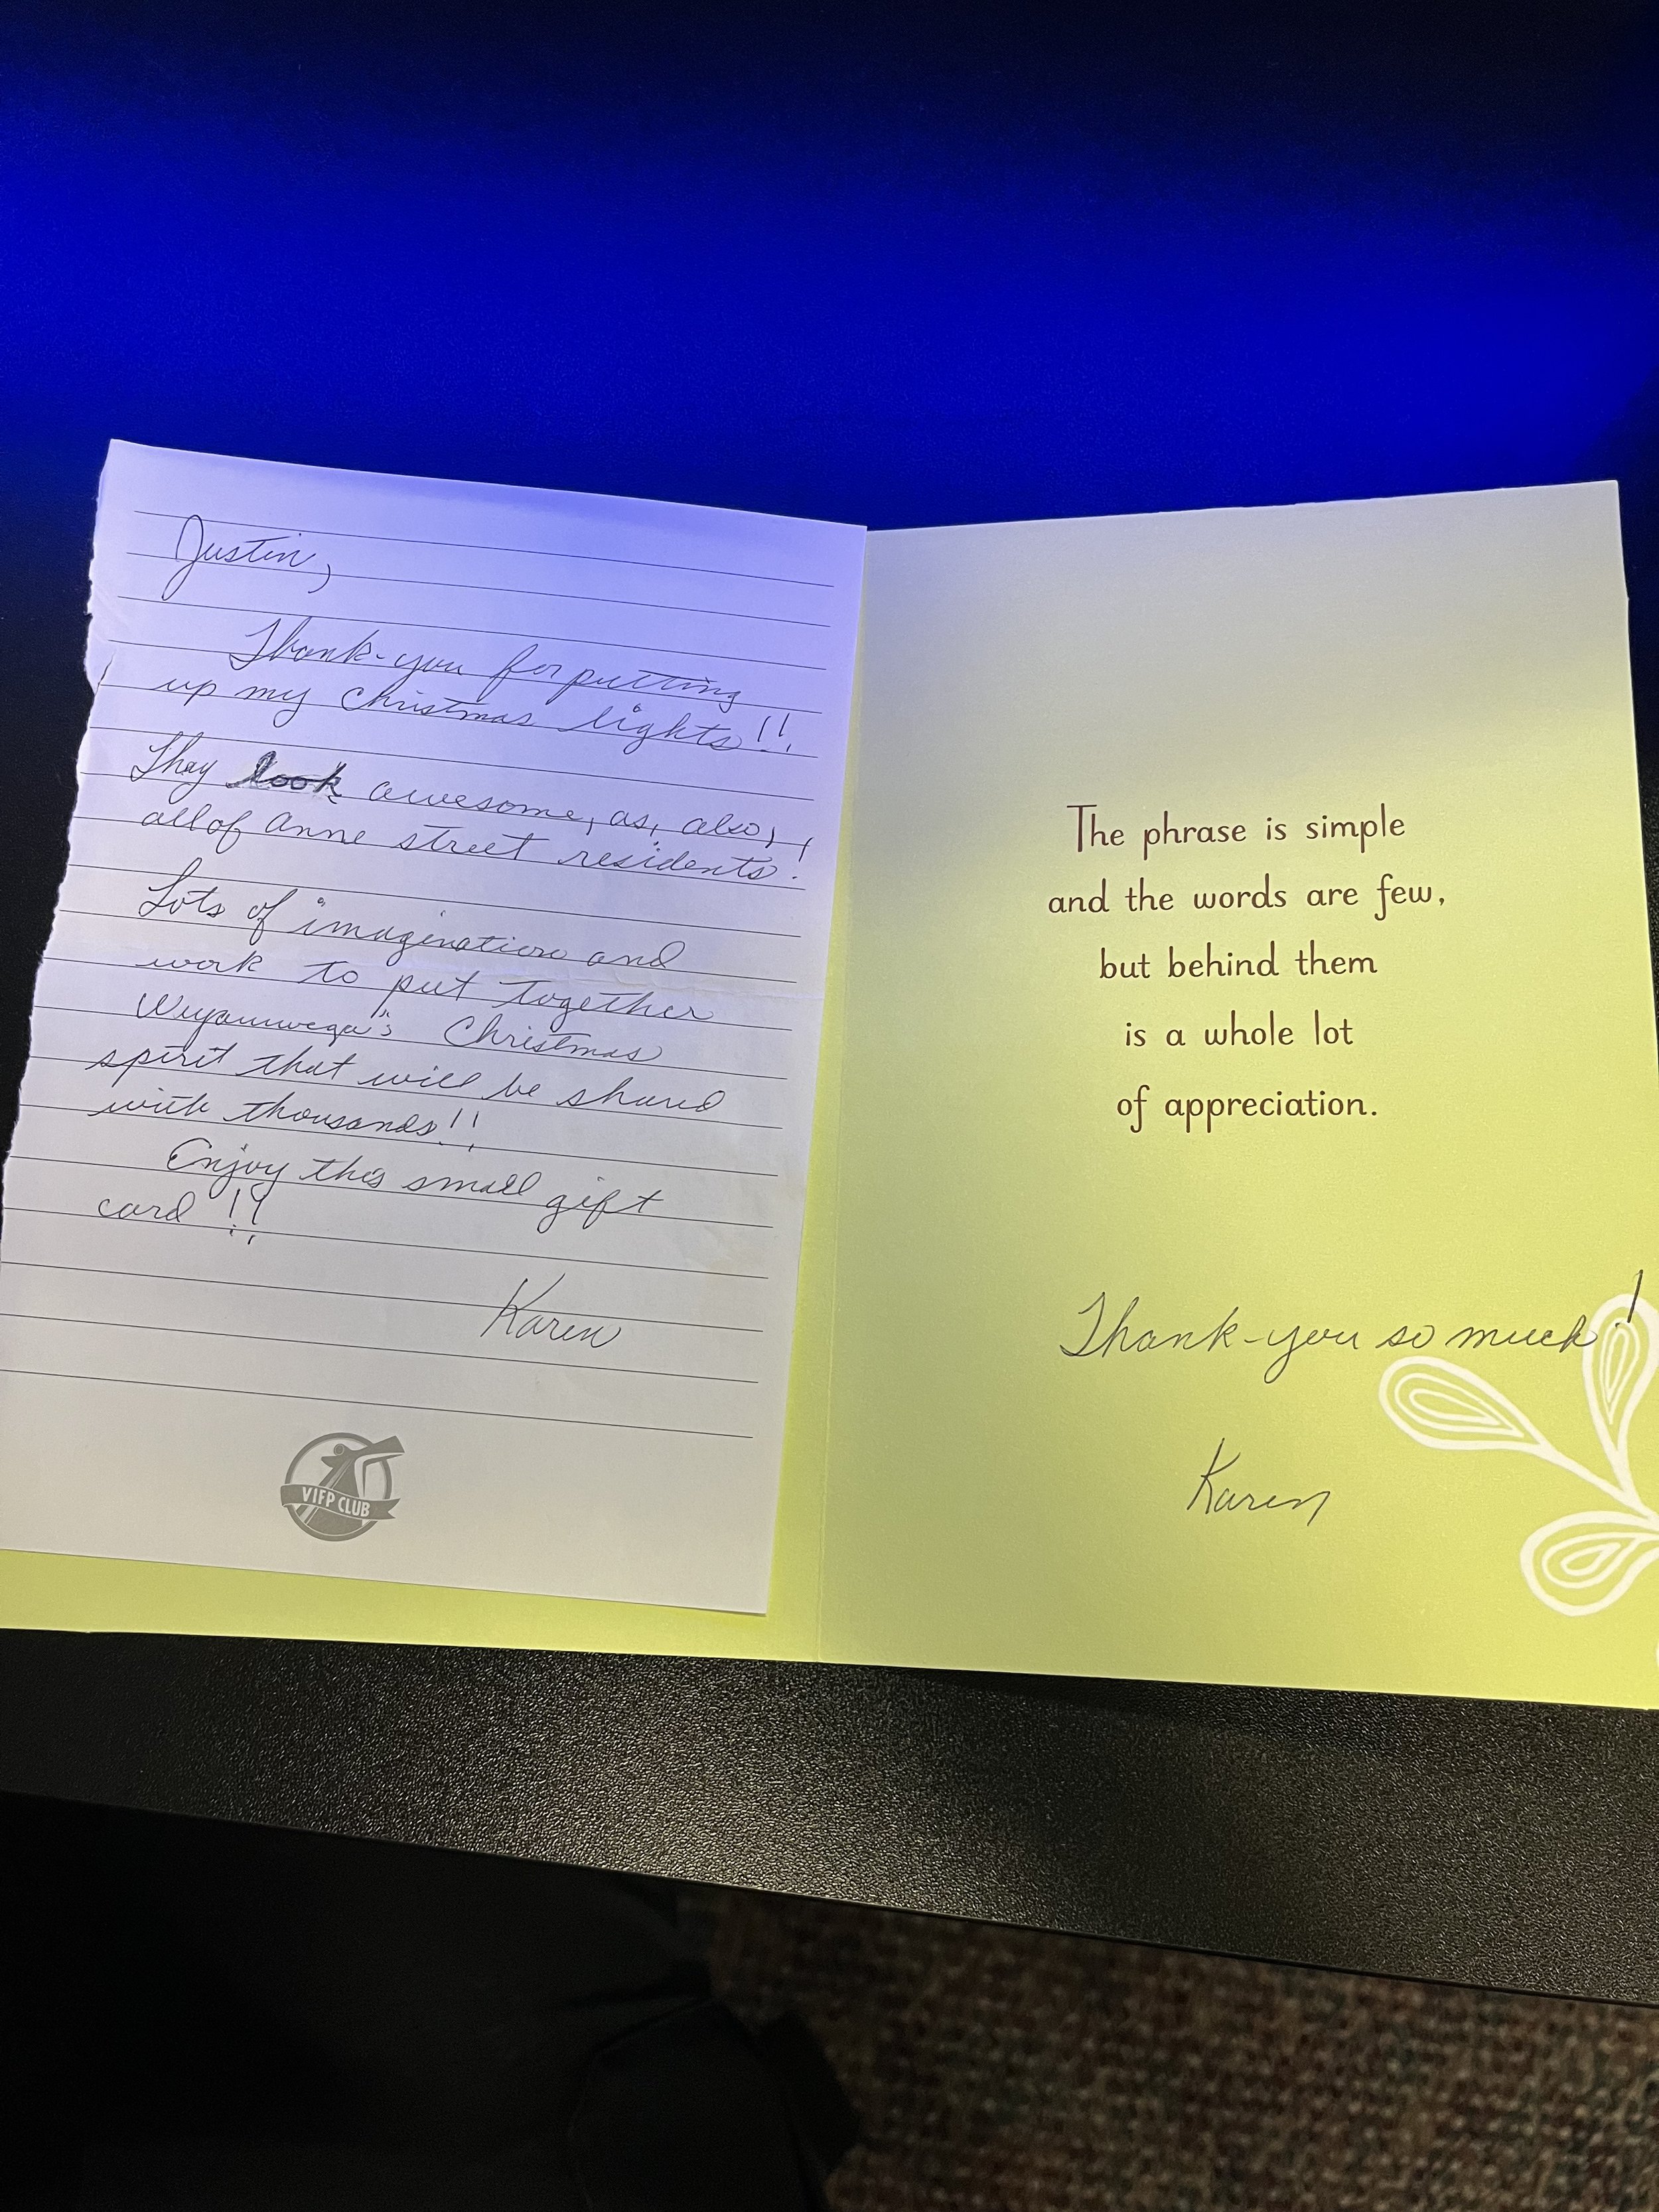 Justin,
Thank-you for putting
up my Christmas lights!!
They look awesome, as, also,
all of Anne street residents!
Lots of imagination and
work to put together
Weyauwega's Christmas
spirit that will be shared
with thousands!!
Enjoy this small gift
card!!
Karen
VIFP CLUB
The phrase is simple
and the words are few,
but behind them
is a whole lot
of appreciation.
Thank-you so much!
Karen